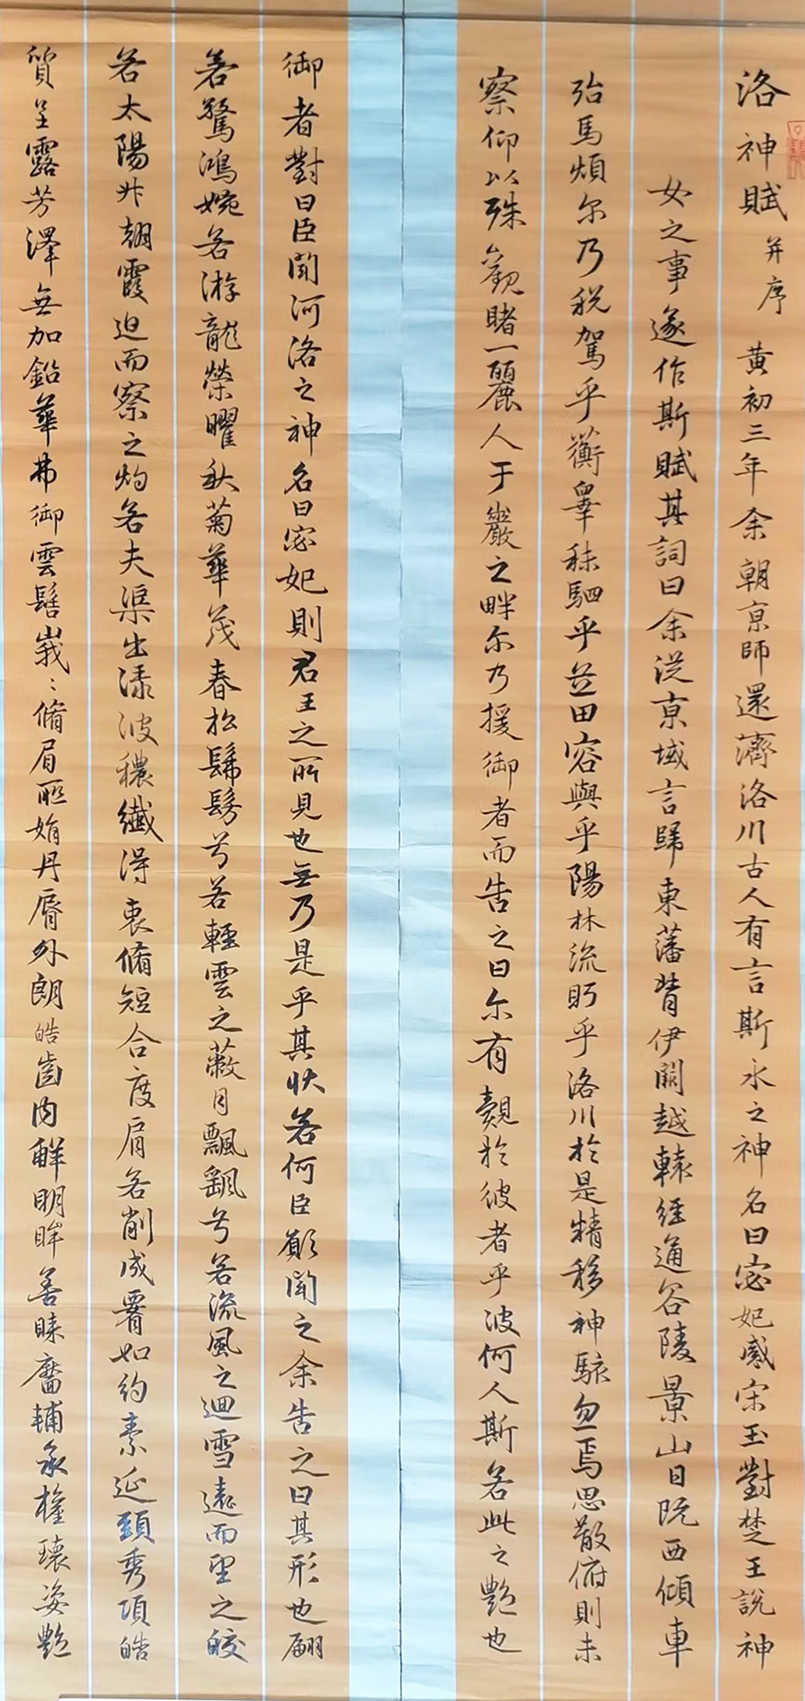 洛神賦并序 黄初三年余朝京師還濟洛川古人有言斯水之神名曰宓妃感宋玉對楚王說神
女之事遂作斯賦其詞曰余從京域言歸東藩背伊闕越轘經通谷陵景山日既西傾車
殆馬煩尔乃税駕乎蘅皋秣駟乎芝田容與乎陽林流眄乎洛川於是精移神駭忽焉思散俯則未
察仰以殊觀睹一麗人于巖之畔尔乃援御者而告之曰尔有覿於彼者乎彼何人斯若此之艷也
御者對曰臣聞河洛之神名曰宓妃則君王之所見也無乃是乎其狀若何臣願聞之余告之曰其形也翩
若驚鴻婉若游龍榮曜秋菊華茂春松髣髴兮若輕雲之蔽月飄飖兮若流風之迴雪遠而望之皎
若太陽升朝霞迫而察之灼若夫渠出渌波穠纖得衷脩短合度肩若削成署如約素延頸秀項皓
質呈露芳澤無加鉛華弗御雲髻峩〻脩眉聯娟丹脣外朗皓齒内鮮明眸善睞靨輔承權瓌姿艷